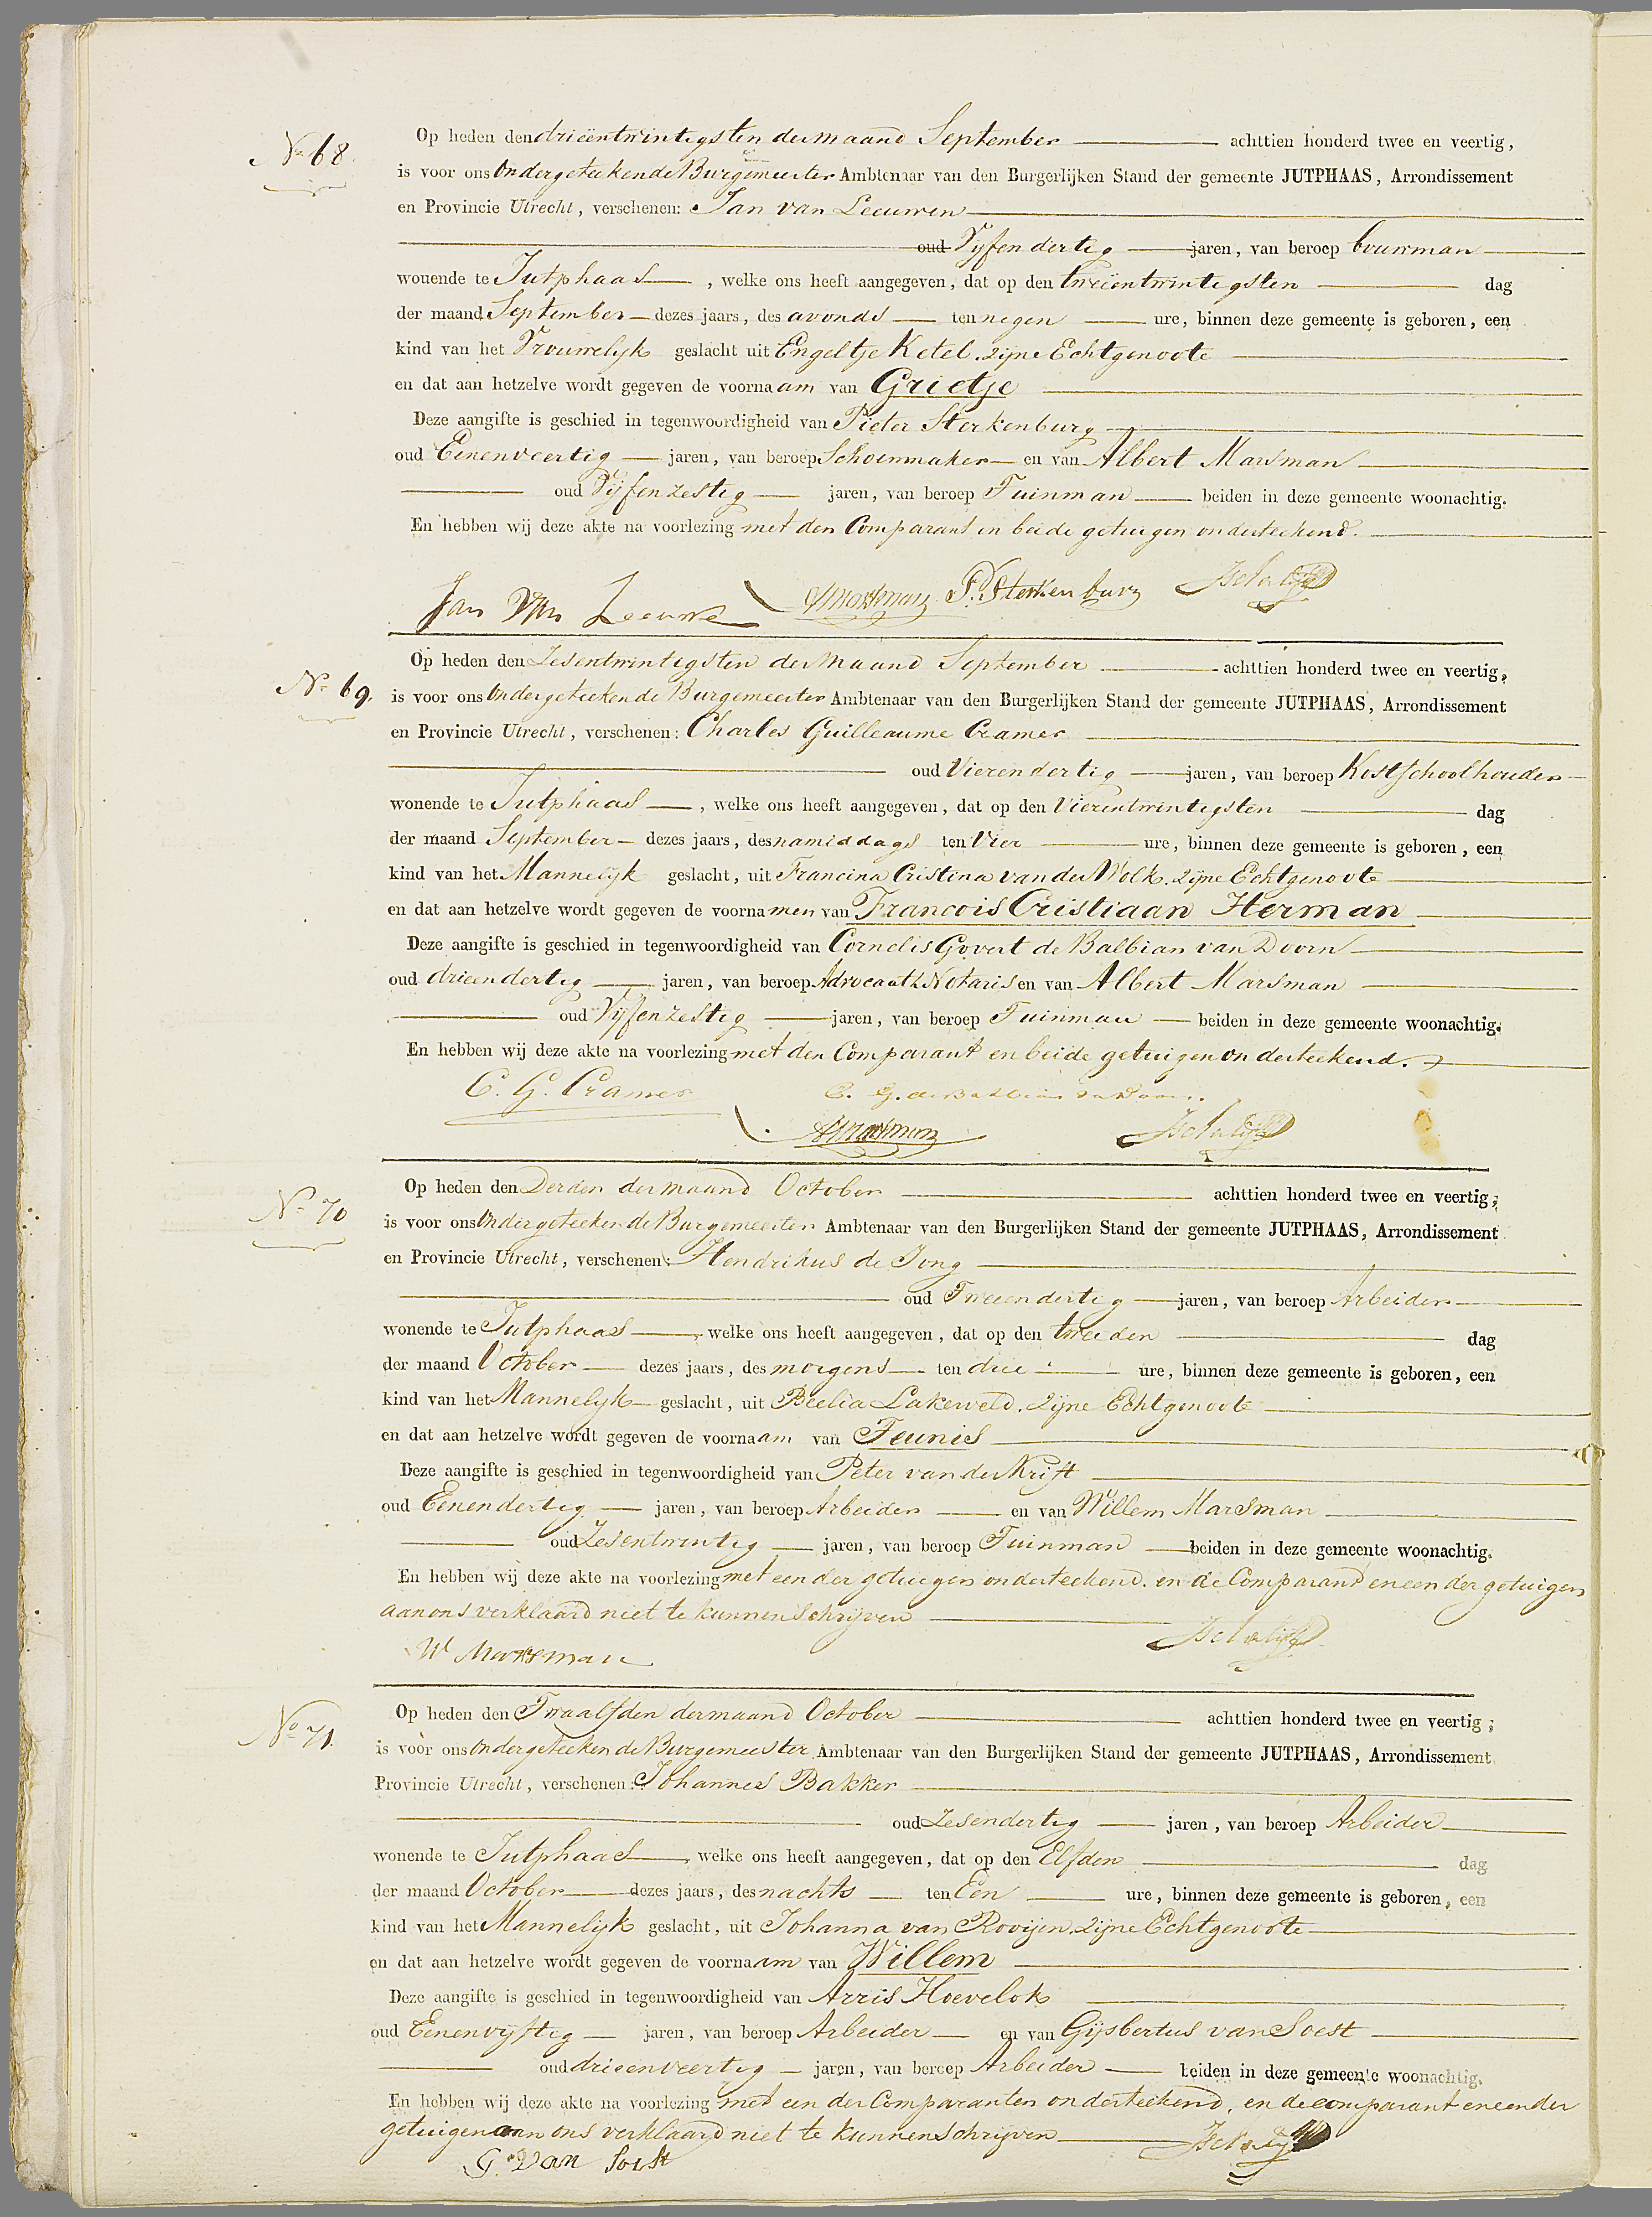 No 68.
Op heden den drieëntwintigsten der maand September achttien honderd twee en veertig,
is voor ons Ondergeteekende Burgemeester Ambtenaar van den Burgerlijken Stand der gemeente JUTPHAAS, Arrondissement
en Provincie Utrecht, verschenen: Jan van Leeuwen
oud Vijfendertig jaren, van beroep bouwman
wonende te Jutphaas, welke ons heeft aangegeven, dat op den tweeëntwintigsten dag
der maand September dezes jaars, des avonds ten negen ure, binnen deze gemeente is geboren, een
kind van het Vrouwelijk geslacht uit Engeltje Ketel. zijne Echtgenoote
en dat aan hetzelve wordt gegeven de voornaam van Grietje
Deze aangifte is geschied in tegenwoordigheid van Pieter Sterkenburg
oud Eenenveertig jaren, van beroep Schoenmaker en van Albert Marsman
oud Vijfenzestig jaren, van beroep Tuinman beiden in deze gemeente woonachtig.
En hebben wij deze akte na voorlezing met den Comparant en beide getuigen onderteekend.
Jan Van Leeuwe AMarsman P. Sterkenburg
No 69.
Op heden den Zesentwintigsten der maand September achttien honderd twee en veertig,
is voor ons Ondergeteekende Burgemeester Ambtenaar van den Burgerlijken Stand der gemeente JUTPHAAS, Arrondissement
en Provincie Utrecht, verschenen: Charles Guilleaume Cramer
oud Vierendertig jaren, van beroep Kostschoolhouder
wonende te Jutphaas, welke ons heeft aangegeven, dat op den Vierentwintigsten dag
der maand September dezes jaars, des namiddags ten Vier ure, binnen deze gemeente is geboren, een
kind van het Mannelijk geslacht, uit Francina Cristina van der Wolk. zijne Echtgenoote
en dat aan hetzelve wordt gegeven de voornamen van Francois Cristiaan Herman
Deze aangifte is geschied in tegenwoordigheid van Cornelis Govert de Balbian van Doorn
oud drieendertig jaren, van beroep Advocaat & Notaris en van Albert Marsman
oud Vijfenzestig jaren, van beroep Tuinman beiden in deze gemeente woonachtig.
En hebben wij deze akte na voorlezing met den Comparant en beide getuigen onderteekend.
C. G. Cramer C. G. de Balbian van Doorn.
AMarsman
No 70
Op heden den Derden der maand October achttien honderd twee en veertig;
is voor ons Ondergeteekende Burgemeester Ambtenaar van den Burgerlijken Stand der gemeente JUTPHAAS, Arrondissement
en Provincie Utrecht, verschenen: Hendrikus de Jong
oud Tweeendertig jaren, van beroep Arbeider
wonende te Jutphaas, welke ons heeft aangegeven, dat op den tweeden dag
der maand October dezes jaars, des morgens ten drie ure, binnen deze gemeente is geboren, een
kind van het Mannelijk geslacht, uit Beelia Lakerveld. zijne Echtgenoote
en dat aan hetzelve wordt gegeven de voornaam van Teunis
Deze aangifte is geschied in tegenwoordigheid van Peter van der Krift
oud Eenendertig jaren, van beroep Arbeider en van Willem Marsman
oud Zesentwintig jaren, van beroep Tuinman beiden in deze gemeente woonachtig.
En hebben wij deze akte na voorlezing met een der getuigen onderteekend. en de Comparant en een der getuigen
aan ons verklaard niet te kunnen schrijven
W Marsman
No 71.
Op heden den Twaalfden der maand October achttien honderd twee en veertig;
is voor ons Ondergeteekende Burgemeester Ambtenaar van den Burgerlijken Stand der gemeente JUTPHAAS, Arrondissement
Provincie Utrecht, verschenen: Johannes Bakker
oud Zesendertig jaren, van beroep Arbeider
wonende te Jutphaas, welke ons heeft aangegeven, dat op den Elfden dag
der maand October dezes jaars, des nachts ten Een ure, binnen deze gemeente is geboren, een
kind van het Mannelijk geslacht, uit Johanna van Rooijen. zijne Echtgenoote
en dat aan hetzelve wordt gegeven de voornaam van Willem
Deze aangifte is geschied in tegenwoordigheid van Arris Hoevelok
oud Eenenvijftig jaren, van beroep Arbeider en van Gijsbertus van Soest
oud drieenveertig jaren, van beroep Arbeider beiden in deze gemeente woonachtig.
En hebben wij deze akte na voorlezing met een der Comparanten onderteekend, en de comparant en een der
getuigen aan ons verklaard niet te kunnen schrijven
G. Van Soest